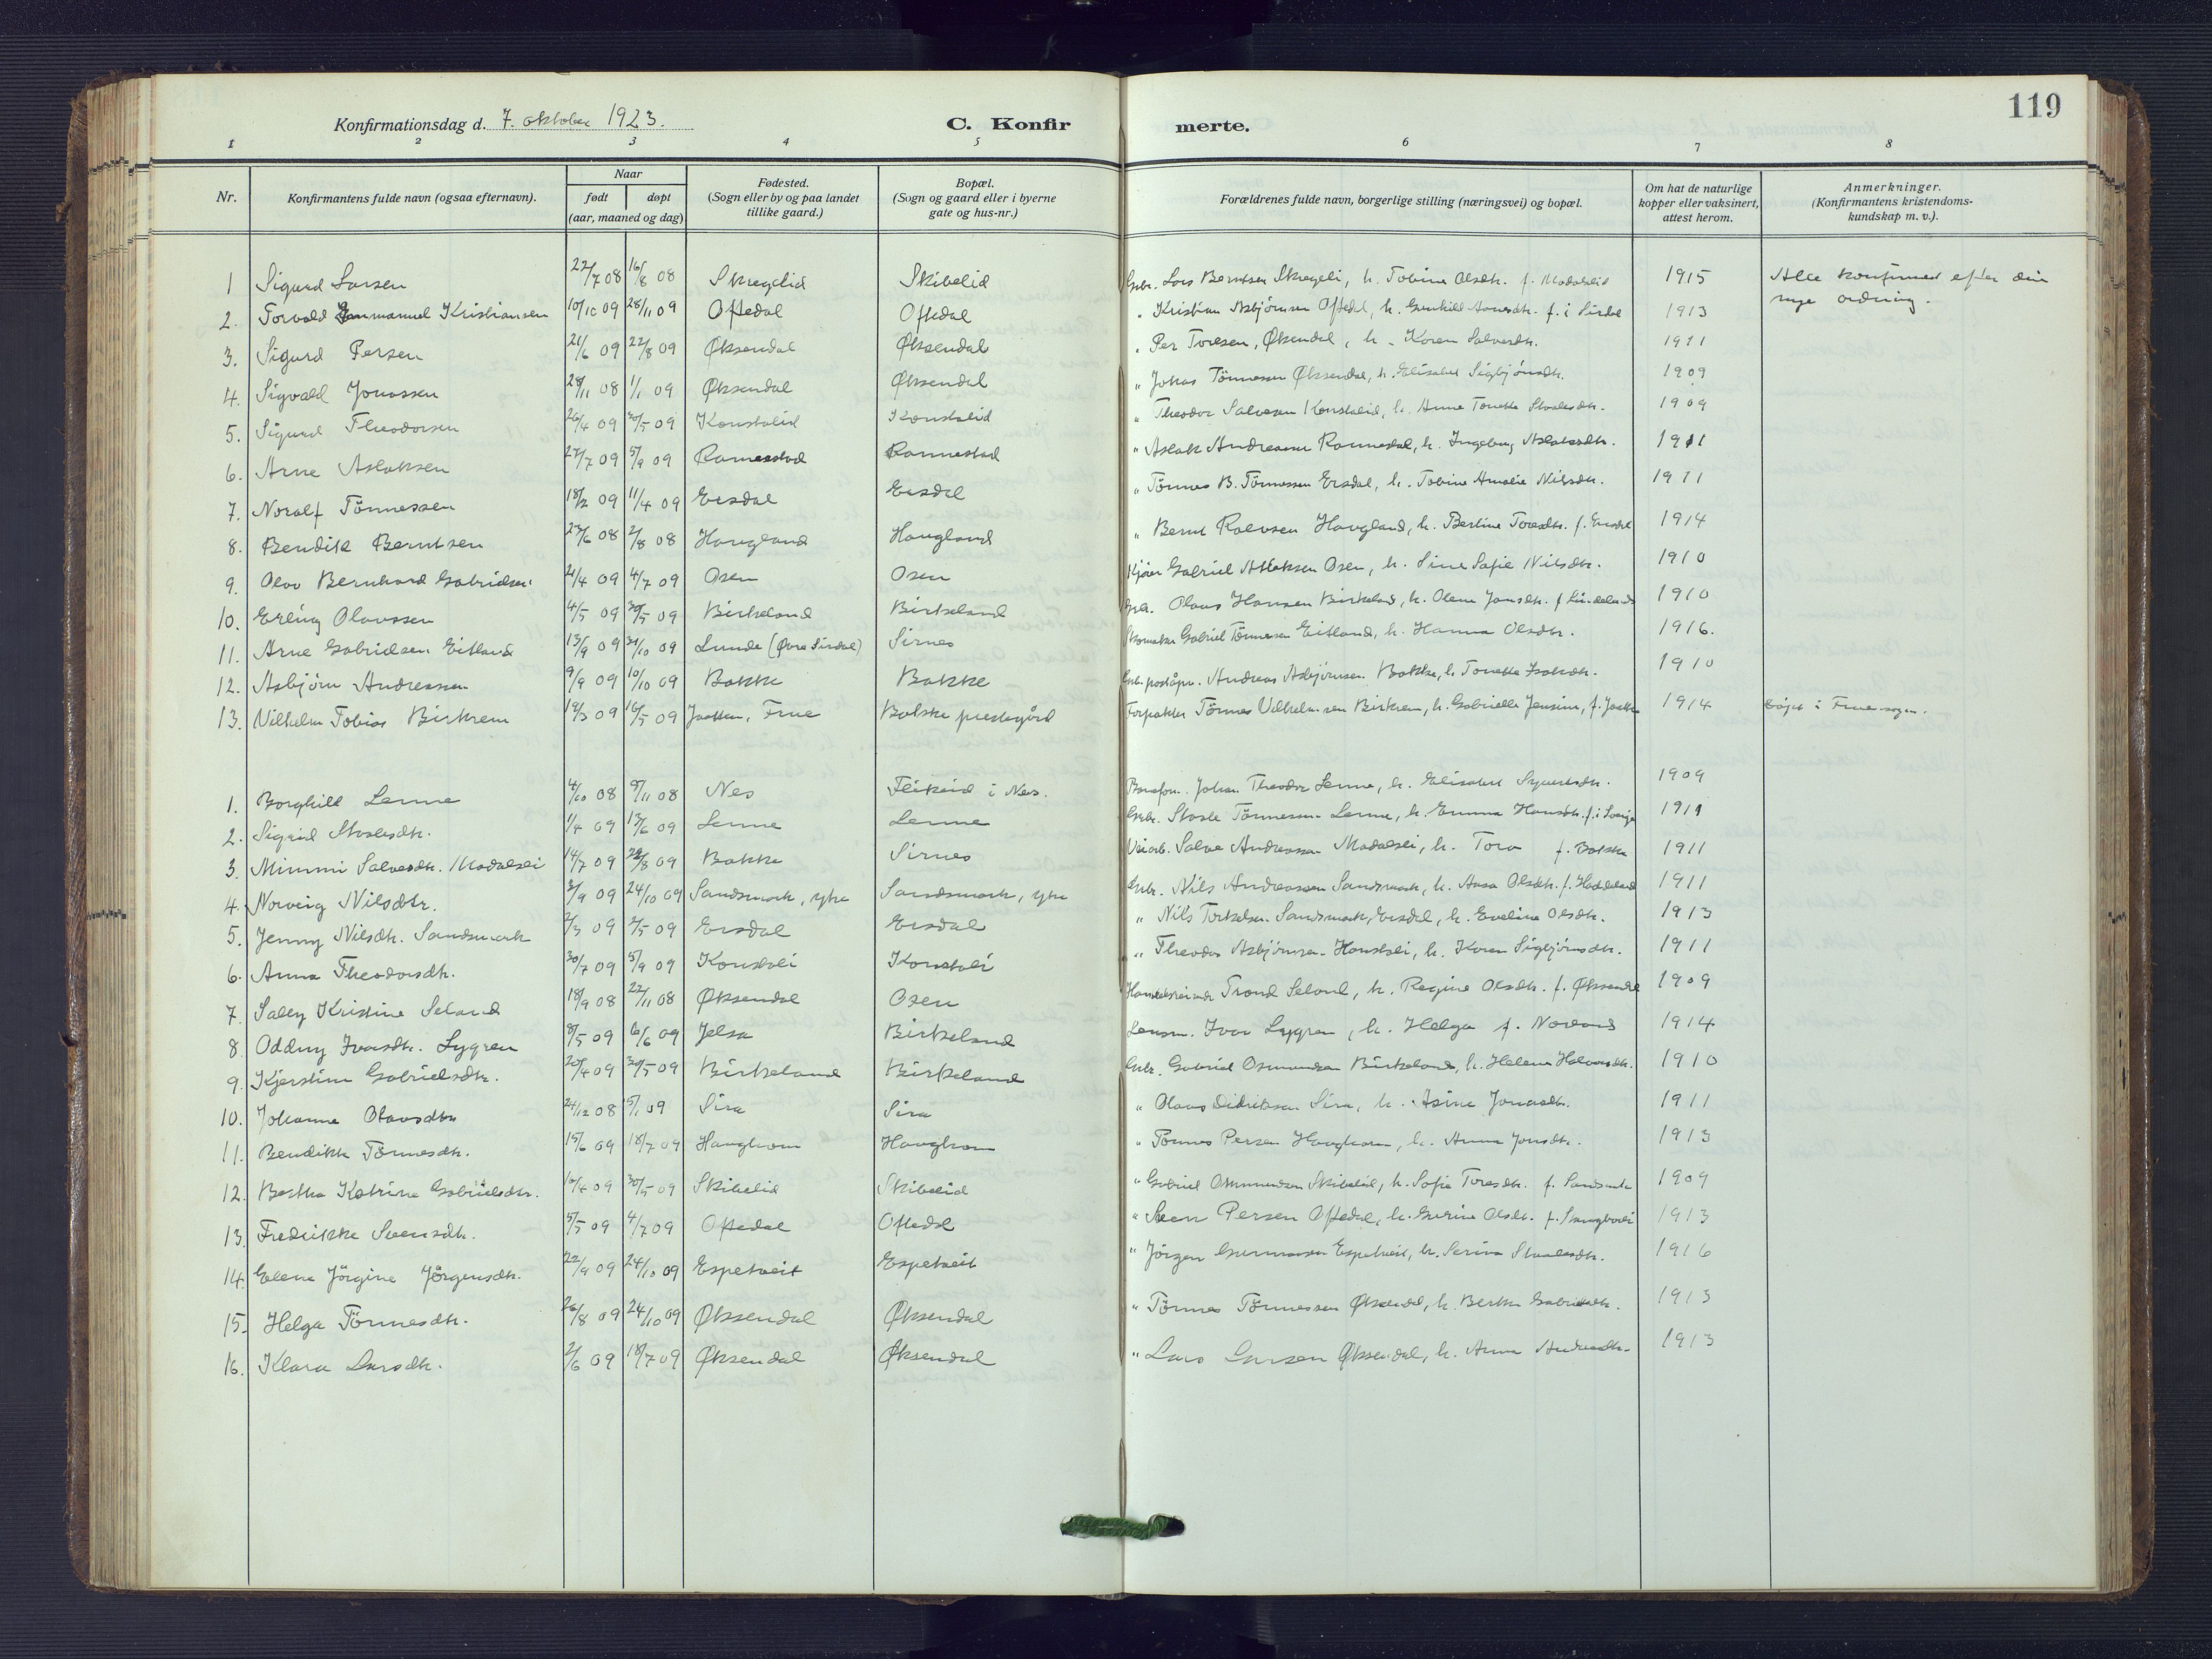 119
Konfirmationsdag d. 7. oktober 1923. C. Konfirmerte.
1 2 3 4 5 6 7 8
Nr. Konfirmantens fulde navn (ogsaa efternavn). Naar født døpt (aar, maaned og dag) Fødested. (Sogn eller by og paa landet tillike gaard.) Bopæl. (Sogn og gaard eller i byerne gate og hus-nr.) Forældrenes fulde navn, borgerlige stilling (næringsvei) og bopæl. Om hat de naturlige kopper eller vaksinert, attest herom. Anmerkninger. (Konfirmantens kristendomskundskap m. v.).
1 Sigurd Larsen 22/7 08 16/8 08 Skregelid Skibelid Gbr. Lars Berntsen Skregeli, h. Tobine Olsdtr. f. 1915 Alle konfirmed efter den nye ordning.
2. Torvald Emmanuel Kristiansen 10/10 09 28/11 09 Oftedal Oftedal " Kristian Asbjørnsen Oftedal, h. Gunhild f. i Sirdal 1913
3. Sigurd Persen 21/6 09 22/8 09 Øksendal Øksendal " Per Toresen, Øksendal, h. Karen Salvesdtr. 1911
4. Sigvald Jonassen 28/11 08 1/1 09 Øksendal Øksendal " Jonas Tönnesen Øksendal, h. Elisabet Sigbjörnsdtr. 1909
5. Sigurd Theodorsen 26/4 09 30/5 09 Konstalid Konstalid " Theodor Salvesen Konstalid, h. Anne Tonette 1909
6. Arne Aslaksen 27/7 09 5/9 09 Ramnestad Ramnestad " Aslak Andreassen h. Ingeborg Aslaksdtr. 1911
7. Noralf Tönnessen 18/2 09 11/4 09 Ersdal Ersdal " Tönnes B. Tönnessen Ersdal, h. Tobine Amalie Nilsdtr. 1911
8. Bendik Berntsen 27/6 08 2/8 08 Haugland Haugland " Bernt Rolvsen Haugland, h. Bertine Toresdtr. f. Ersdal 1914
9. Olav Bernhard Gabrielsen 21/4 09 4/7 09 Osen Osen Gabriel Atlaksen Osen, h. Sine Sofie Nilsdtr. 1910
10. Erling Olavssen 4/5 09 30/5 09 Birkeland Birkeland Gbr. Olaus Hansen Birkeland, h. Olene Jonsdtr. f. 1910
11. Arne Gabrielsen Eitland 13/9 09 31/10 09 Lunde (Øvre Sirdal) Sirnes Skomaker Gabriel Tönnesen Eitland, h. Hanna Olsdtr. 1916.
12. Asbjörn Andreassen 9/9 09 10/10 09 Bakke Bakke Gbr. poståpn. Andreas Asbjörnsen Bakke, h. Tonette 1910
13. Vilhelm Tobias Birkrem 19/3 09 16/5 09 Jaatten, Frue Bakke prestegård Forpakter Tönnes Vilhelmsen Birkrem, h. Gabrielle Jensine, f. Jaatten 1914 döpt i Frue sogn.
1. Borghild Lenne 4/10 08 8/11 08 Nes Fleikeid i Nes. Johan Theodor Lenne, h. Elisabet Syvertsdtr. 1909
2. Sigrid Staalesdtr. 1/4 09 13/6 09 Lenne Lenne Gbr. Staale Tönnessen Lenne, h. Emma Hansdtr. f. i Sverige 1911
3. Mimmi Salvesdtr. Modalsli 14/7 09 29/8 09 Bakke Sirnes Veiarb. Salve Andreassen Modalsli, h. Tora f. Bakke 1911
4. Norveig Nilsdtr. 3/9 09 24/10 09 Sandsmark, ytre Sandsmark, ytre Gbr. Nils Andreassen Sandsmark, h. Aasa Olsdtr. f. Haddeland 1911
5. Jenny Nilsdtr. Sandsmark 2/3 09 2/5 09 Ersdal Ersdal " Nils Torkelsen Sandsmark, Ersdal, h. Eveline Olsdtr. 1913
6. Anna Theodorsdtr. 30/7 09 5/9 09 Konstali Konstali " Theodor Asbjörnsen Konstali, h. Karen Sigbjörnsdtr. 1911
7. Sally Kristine Seland 18/9 08 22/11 08 Øksendal Osen Handelsreisende Trond Seland, h. Regine Olsdtr. f. Øksendal 1909
8. Oddny Ivarsdtr. Lygren 8/5 09 6/6 09 Jelsa Birkeland Lensm. Ivar Lygren, h. Helga f. 1914
9. Kjerstine Gabrielsdtr. 20/4 09 30/5 09 Birkeland Birkeland Gbr. Gabriel Osmundsen Birkeland, h. Helene Halvorsdtr. 1910
10. Johanne Olausdtr. 24/12 08 5/1 09 Sira Sira " Olaus Didriksen Sira, h. Asine Jonasdtr. 1911
11. Bendikke Tönnesdtr. 15/6 09 18/7 09 Haughom Haughom " Tönnes Persen Haughom, h. Anna Jonsdtr. 1913
12. Bertha Katrine Gabrielsdtr. 16/4 09 30/5 09 Skibelid Skibelid " Gabriel Osmundsen Skibelid, h. Sofie Toresdtr. f. 1909
13. Fredrikke Svensdtr. 5/5 09 4/7 09 Oftedal Oftedal " Sven Persen Oftedal, h. Gurine Olsdtr. f. 1913
14. Elena Jörgine Jörgensdtr. 22/9 09 24/10 09 Espetveit Espetveit " Jörgen Gunnarsen Espetveit, h. Serina Staalesdtr. 1916
15. Helga Tönnesdtr. 26/8 09 24/10 09 Øksendal Øksendal " Tönnes Tönnessen Øksendal, h. Berthe Gabrielsdtr. 1913
16. Klara Larsdtr. 2/6 09 18/7 09 Øksendal Øksendal " Lars Larsen Øksendal, h. Anna Andreasdtr. 1913